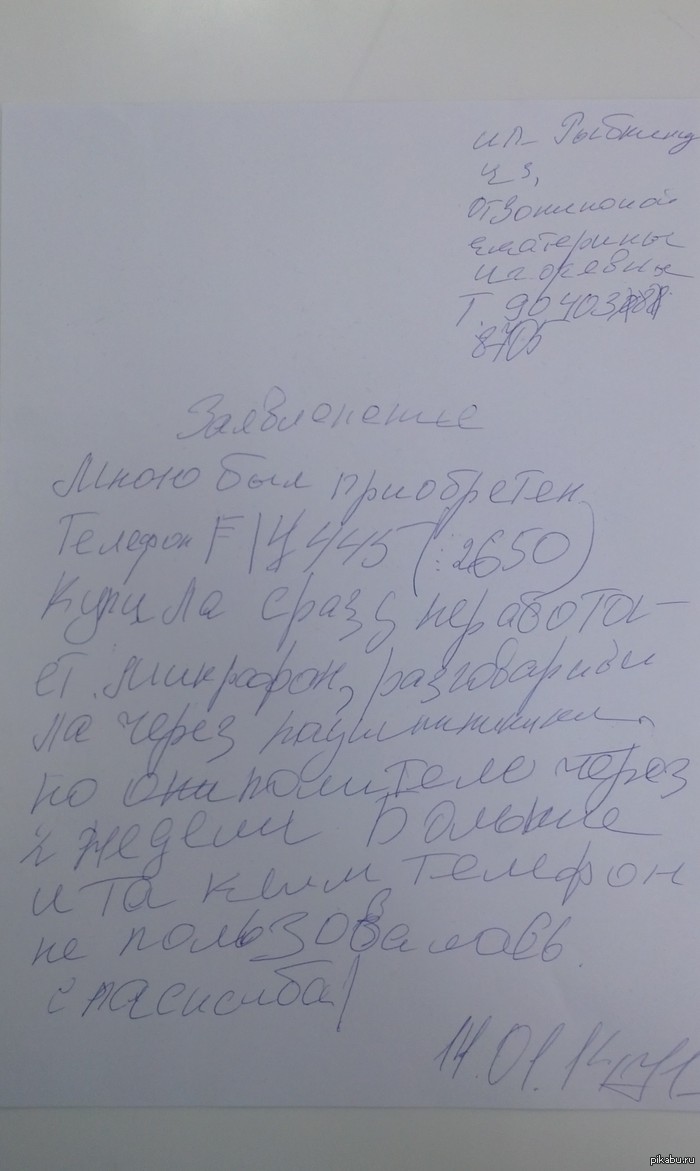 ип Рыбкину
ч з,
от Зониной
екатерины
игоревны
Т. 90403
8705
Заявленение
Мною был приобретен
Телефон F Ц 445 (: 2650)
Купила сразу неработа-
ет. микрофон, разговарива
ла через наушники
но они полители через
2 недели Больше
и та телефон
не пользовалавь.
спасисиба!
14.01.14
pikabu.ru